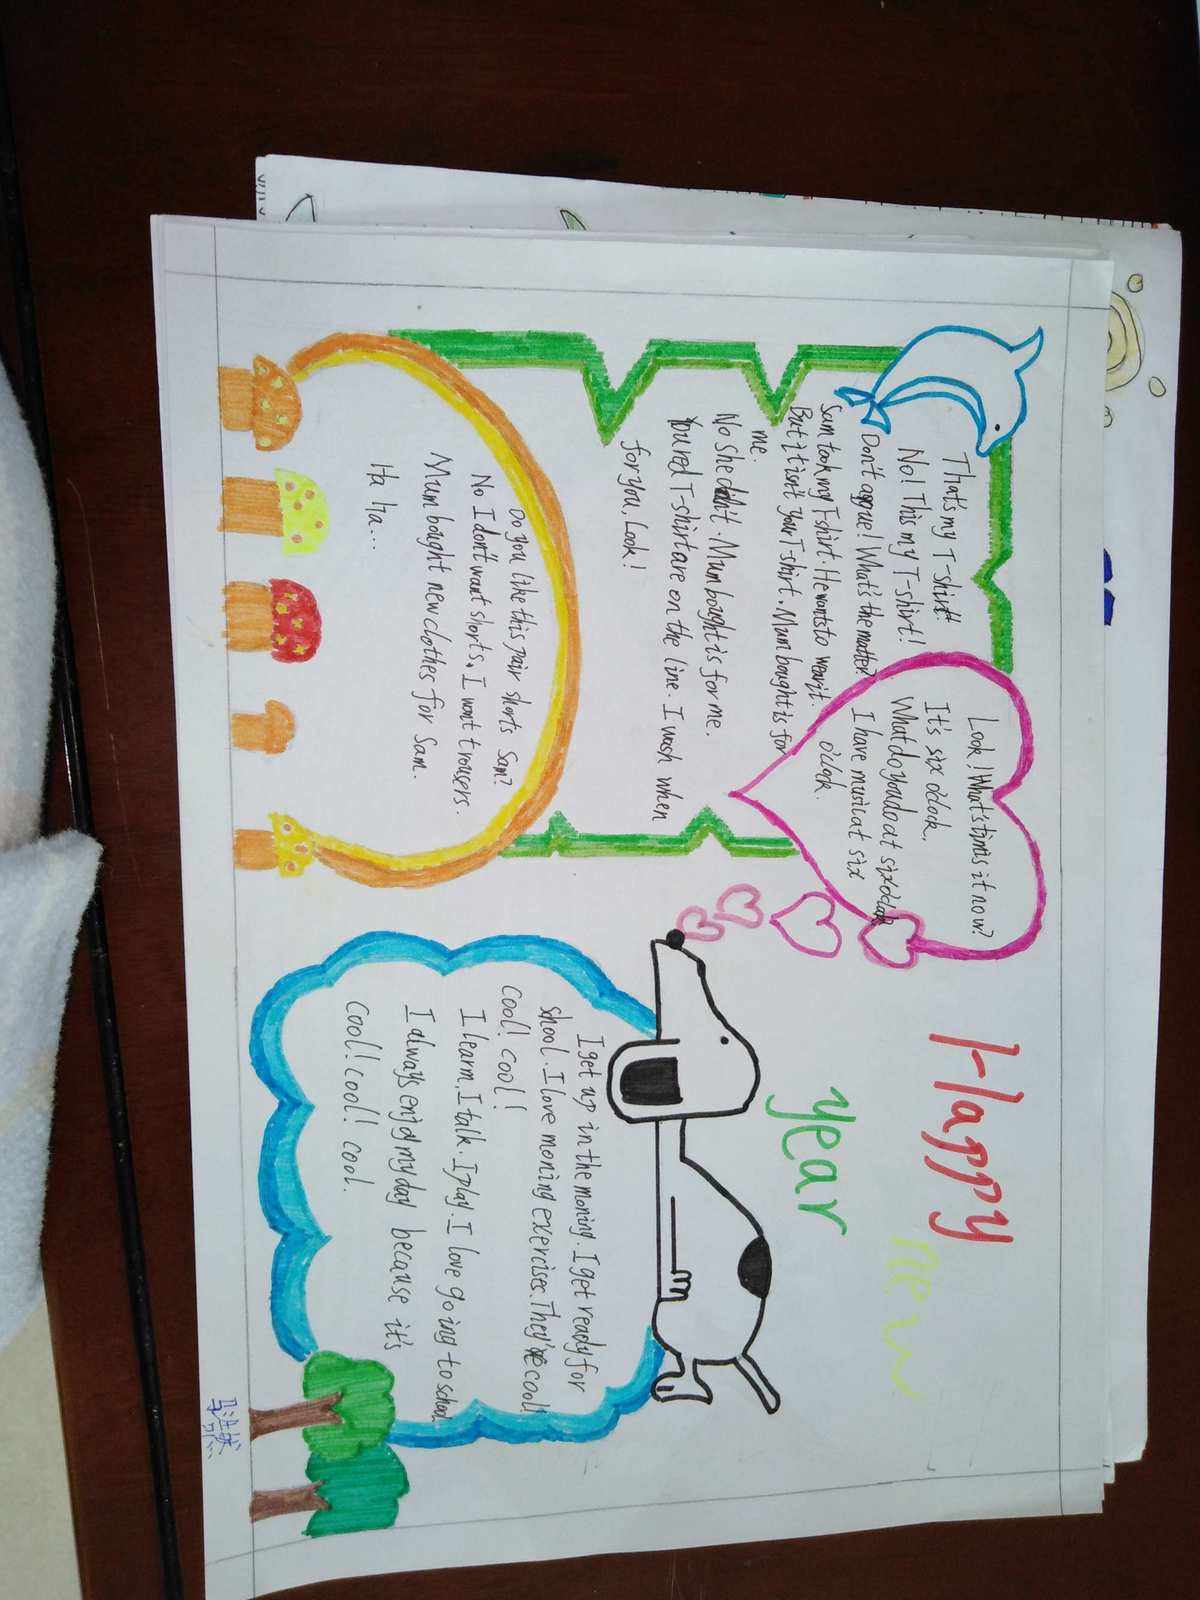 Happy
new
year
That's my T-shirt!
No! This my T-shirt!
Don't aqgue! What's the matter?
Sam took my T-shirt. He wants to wear it.
But it isn't your T-shirt. Mum bought is for
me.
No she didn't. Mum bought is for me.
You red T-shirt are on the line. I wash when
for you. Look!
Look! What's time is it now?
It's six o'clock.
What do you do at six o'clock
I have music at six
o'clock.
Do you like this pair shorts Sam?
No I don't want shorts. I want trousers.
Mum bought new clothes for Sam.
Ha Ha...
I get up in the moning. I get ready for
shool. I love moning exercises. They're cool!
cool! cool!
I learm. I talk. I play. I love going to school
I always enjoy my day because it's
cool! cool! cool.